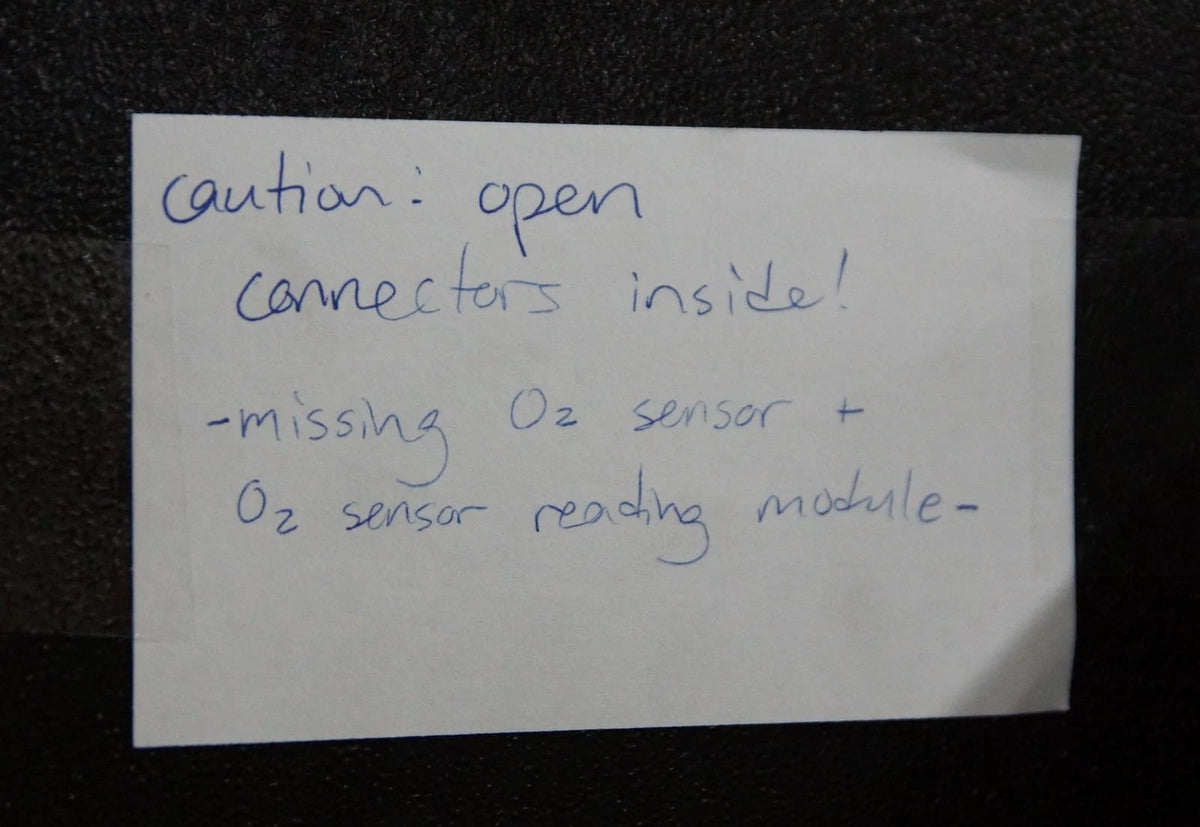 caution: open
connectors inside!
-missing O₂ sensor +
O₂ sensor reading module-